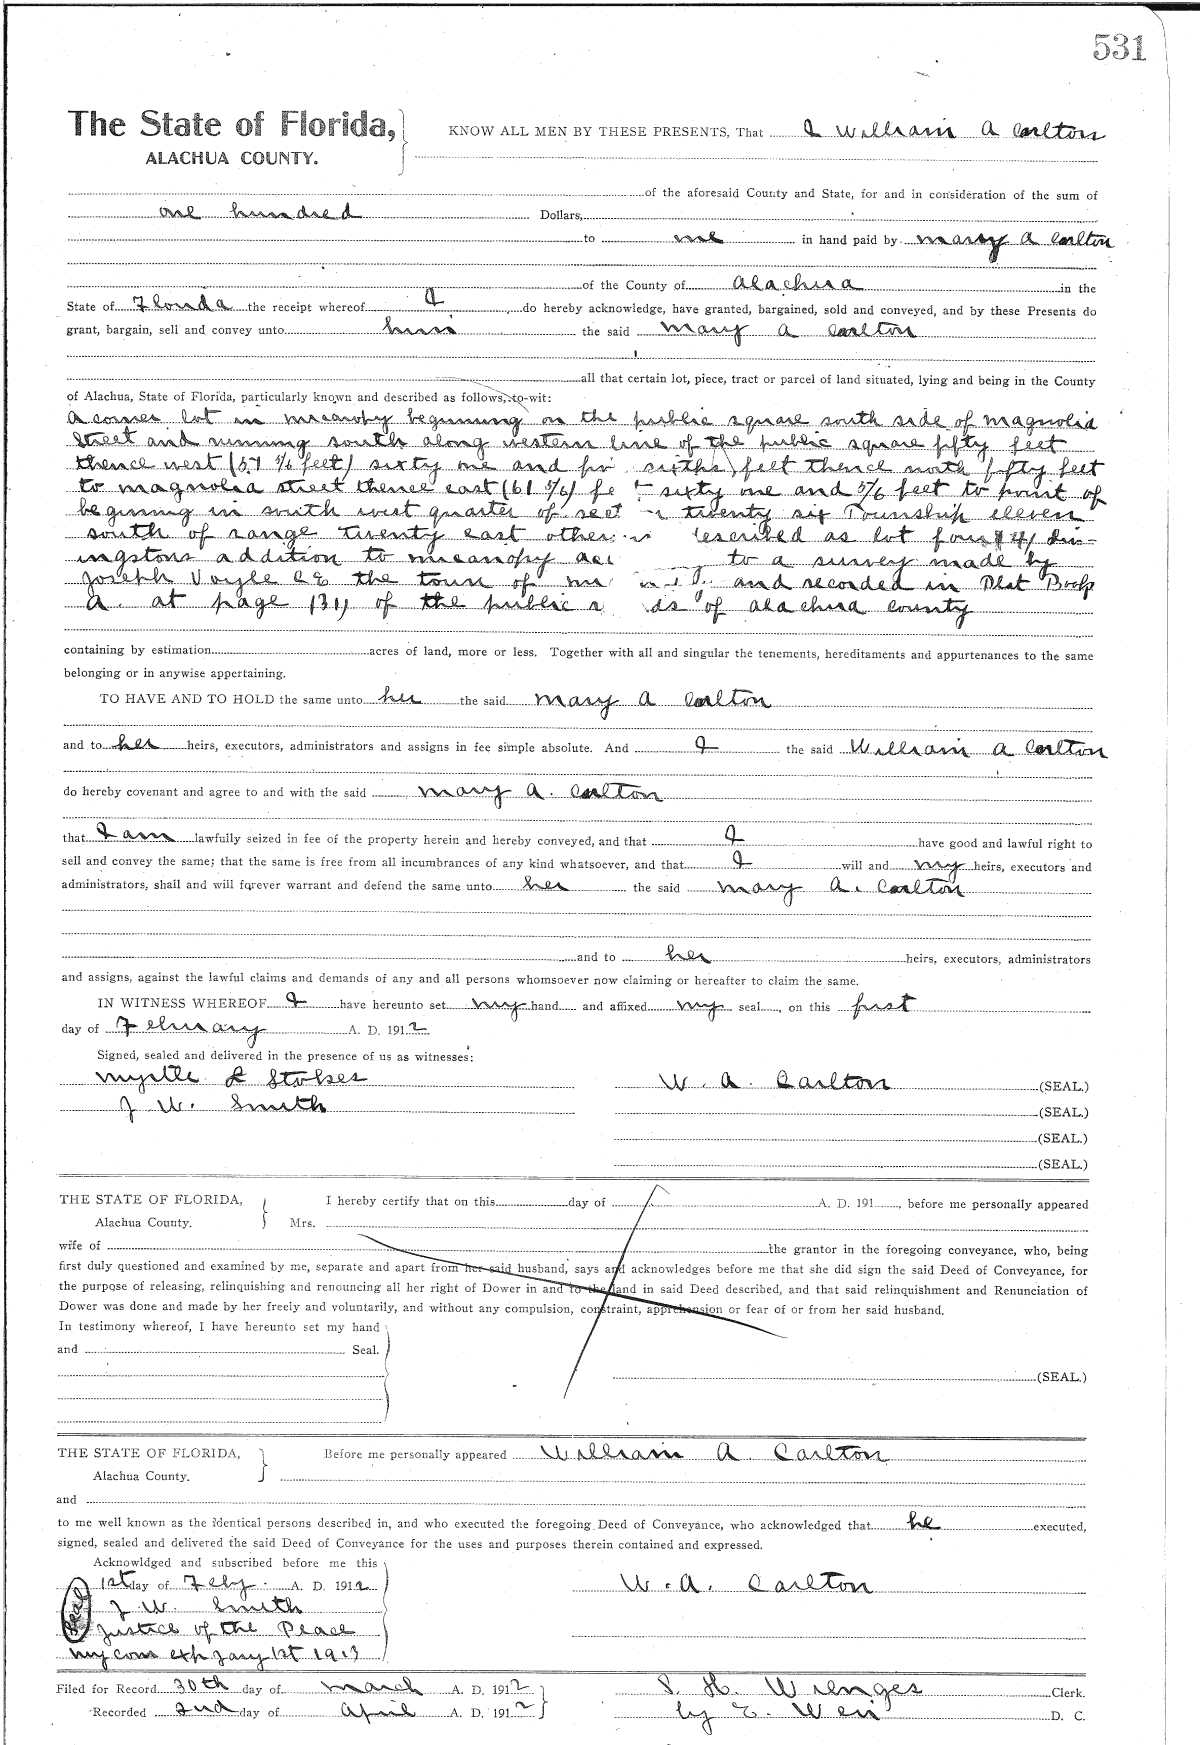 531
The State of Florida,
ALACHUA COUNTY.
KNOW ALL MEN BY THESE PRESENTS, That I William A Carlton
of the aforesaid County and State, for and in consideration of the sum of
one hundred Dollars,
to me in hand paid by mary a Carlton
of the County of Alachua in the
State of Florida the receipt whereof I do hereby acknowledge, have granted, bargained, sold and conveyed, and by these Presents do
grant, bargain, sell and convey unto the said mary a Carlton
all that certain lot, piece, tract or parcel of land situated, lying and being in the County
of Alachua, State of Florida, particularly known and described as follows, to-wit:
a corner lot in micanopy beginning on the public square south side of magnolia
street and running south along western line of the public square fifty feet
thence west (57 5/6 feet) sixty one and sixths) feet thence north fifty feet
to magnolia street thence east (61 5/6) sixty one and 5/6 feet to point of
beginning in south west quarter of twenty six Township eleven
south of range twenty east described as lot four (4)
ingstons addition to micanopy to a survey made by
Joseph Voyle C E the town of and recorded in Plat Book
A. at page (31) of the public of Alachua county
containing by estimation acres of land, more or less. Together with all and singular the tenements, hereditaments and appurtenances to the same
belonging or in anywise appertaining.
TO HAVE AND TO HOLD the same unto her the said mary a Carlton
and to her heirs, executors, administrators and assigns in fee simple absolute. And I the said William a Carlton
do hereby covenant and agree to and with the said mary a. Carlton
that I am lawfully seized in fee of the property herein and hereby conveyed, and that I have good and lawful right to
sell and convey the same; that the same is free from all incumbrances of any kind whatsoever, and that I will and my heirs, executors and
administrators, shall and will forever warrant and defend the same unto her the said mary A. Carlton
and to her heirs, executors, administrators
and assigns, against the lawful claims and demands of any and all persons whomsoever now claiming or hereafter to claim the same.
IN WITNESS WHEREOF I have hereunto set my hand and affixed my seal, on this first
day of February A. D. 1912
Signed, sealed and delivered in the presence of us as witnesses:
myrtle L Stokes W. A. Carlton (SEAL.)
J W. Smith (SEAL.)
(SEAL.)
(SEAL.)
THE STATE OF FLORIDA, I hereby certify that on this day of A. D. 191 , before me personally appeared
Alachua County. Mrs.
wife of the grantor in the foregoing conveyance, who, being
first duly questioned and examined by me, separate and apart from her said husband, says and acknowledges before me that she did sign the said Deed of Conveyance, for
the purpose of releasing, relinquishing and renouncing all her right of Dower in and to the land in said Deed described, and that said relinquishment and Renunciation of
Dower was done and made by her freely and voluntarily, and without any compulsion, constraint, apprehension or fear of or from her said husband.
In testimony whereof, I have hereunto set my hand
and Seal.
(SEAL.)
THE STATE OF FLORIDA, Before me personally appeared William A. Carlton
Alachua County.
and
to me well known as the identical persons described in, and who executed the foregoing Deed of Conveyance, who acknowledged that he executed,
signed, sealed and delivered the said Deed of Conveyance for the uses and purposes therein contained and expressed.
Acknowldged and subscribed before me this
1st day of Feby. A. D. 1912 W. A. Carlton
Seal J W. Smith
Justice of the Peace
my com exp Jany 1st 1913
Filed for Record 30th day of march A. D. 1912 S. H. Wienges Clerk.
Recorded 2nd day of April A. D. 1912 by E. D. C.